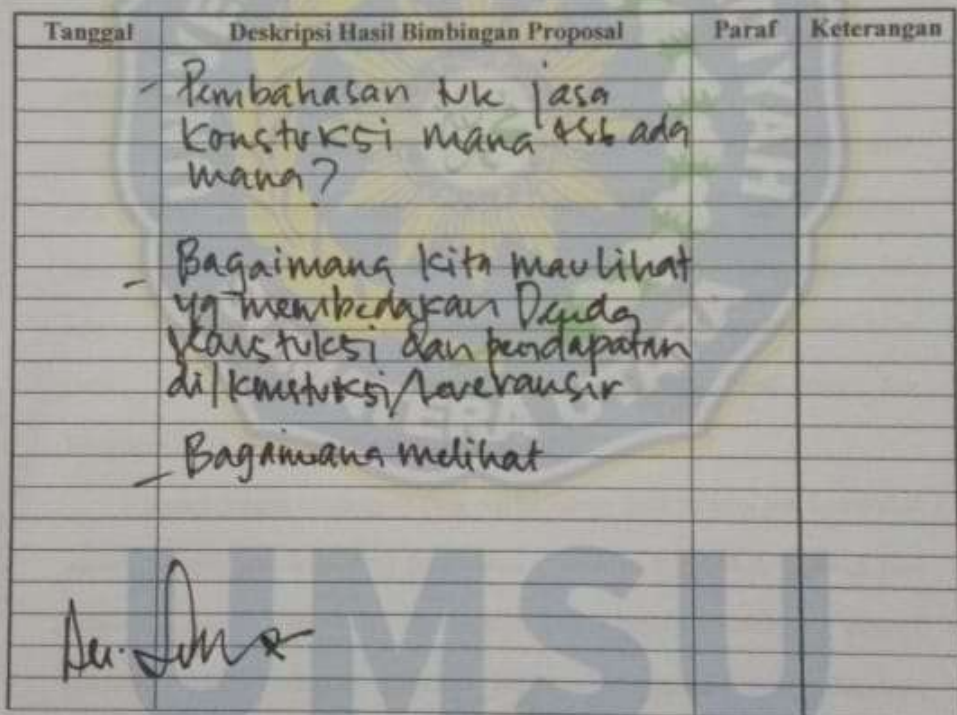 Tanggal Deskripsi Hasil Bimbingan Proposal Paraf Keterangan
- Pembahasan utk jasa
Konstuksi mana tsb ada
mana?
- Bagaimana kita mau lihat
yg membedakan Denda
Konstuksi dan pendapatan
di/konstuksi/leveransir
- Bagaimana melihat
UMSU